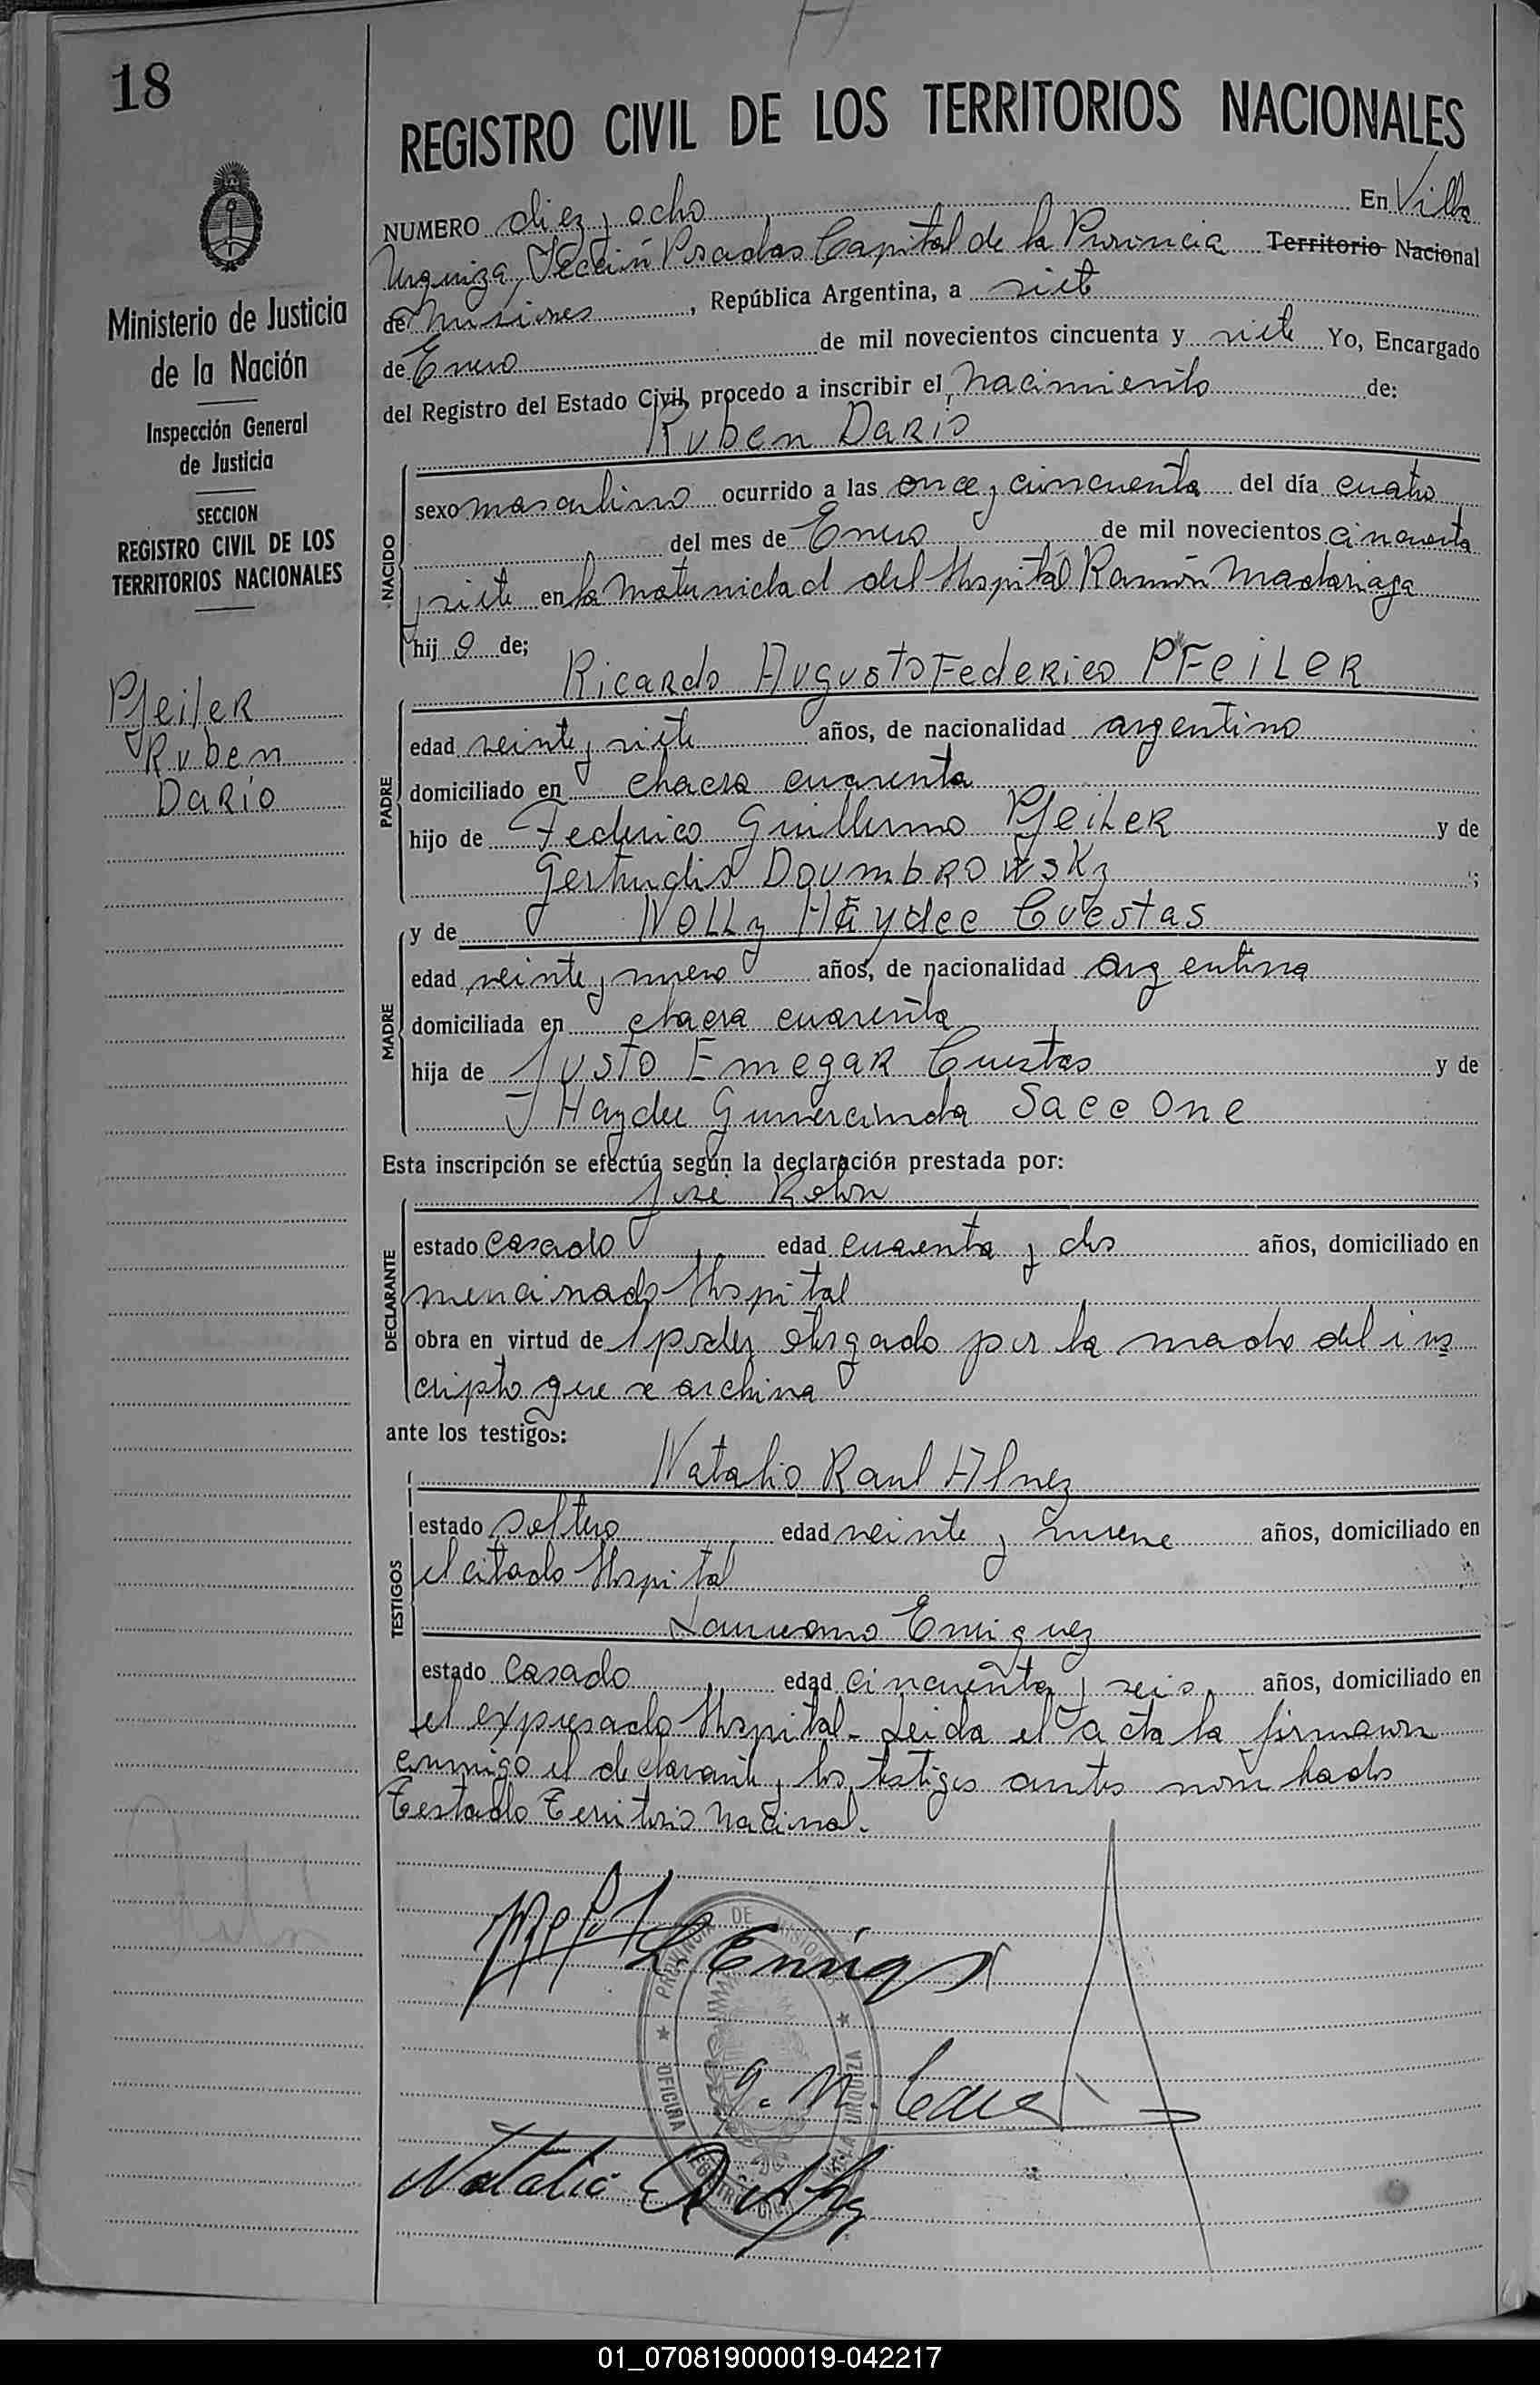 18
REGISTRO CIVIL DE LOS TERRITORIOS NACIONALES
NUMERO diez y ocho En Villa
Urquiza, Sección Posadas Capital de la Provincia Territorio Nacional
de Misiones, República Argentina, a siete
de Enero de mil novecientos cincuenta y siete Yo, Encargado
del Registro del Estado Civil, procedo a inscribir el nacimiento de:
Ruben Darío
Ministerio de Justicia
de la Nación
Inspección General
de Justicia
SECCION
REGISTRO CIVIL DE LOS
TERRITORIOS NACIONALES
Pfeiler
Ruben
Darío
NACIDO
sexo masculino ocurrido a las once y cincuenta del día cuatro
del mes de Enero de mil novecientos cincuenta
y siete en la Maternidad del Hospital Ramón Madariaga
hij o de;
Ricardo Augusto Federico PFeiLeR
PADRE
edad veinte y siete años, de nacionalidad argentino
domiciliado en chacra cuarenta
hijo de Federico Guillermo Pfeiler y de
Gertrudis Doumbrowsky ;
y de Nolly Haydee Cuestas
MADRE
edad veinte y nueve años, de nacionalidad argentina
domiciliada en chacra cuarenta
hija de Justo Emegar Cuestas y de
Haydee Gumercinda Saccone
Esta inscripción se efectúa según la declaración prestada por:
José Rohn
DECLARANTE
estado casado edad cuarenta y dos años, domiciliado en
mencionado Hospital
obra en virtud de poder otorgado por la madre del ins
cripto que se archiva
ante los testigos:
Natalio Raul
TESTIGOS
estado soltero edad veinte y nueve años, domiciliado en
el citado Hospital
Laureano Enriquez
estado casado edad cincuenta y seis años, domiciliado en
el expresado Hospital- Leida el acta la firmaron
conmigo el declarante y los testigos antes nombrados
Testado Territorio Nacional.
L Enriquez
PROVINCIA DE MISIONES
OFICINA REGISTRO CIVIL VILLA URQUIZA
Natalio R
01_070819000019-042217